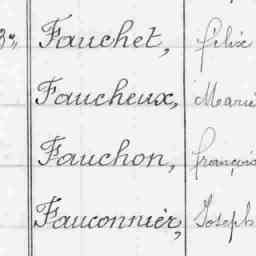 Fauchet, félix
Faucheux, Marie
Fauchon, françois
Fauconnier, Joseph